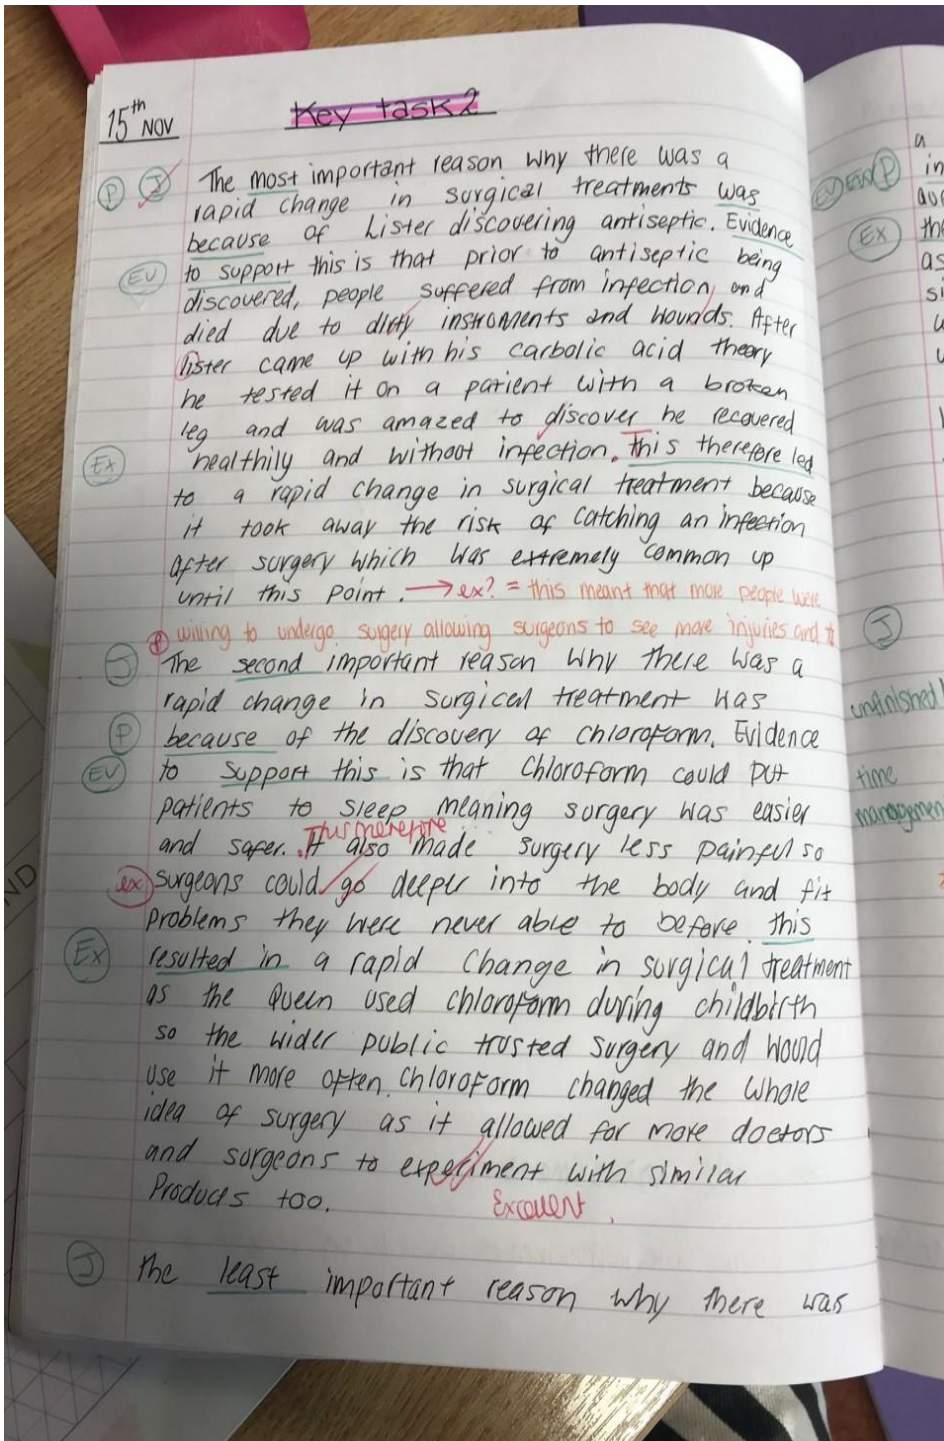 15th NOV
Key task 2
P J The most important reason why there was a
rapid change in surgical treatments was
because of Lister discovering antiseptic. Evidence
EV to support this is that prior to antiseptic being
discovered, people suffered from infection and
died due to dirty instruments and wounds. After
lister came up with his carbolic acid theory
he tested it on a patient with a broken
leg and was amazed to discover he recovered
Ex healthily and without infection. This therefore led
to a rapid change in surgical treatment because
it took away the risk of catching an infection
after surgery which was extremely common up
until this point. → ex? = this meant that more people were
P willing to undergo surgery allowing surgeons to see more injuries and
J The second important reason why there was a
rapid change in surgical treatment was
P because of the discovery of chloroform. Evidence
EV to support this is that chloroform could put
patients to sleep meaning surgery was easier
This therefore
and safer. It also made surgery less painful so
ex surgeons could go deeper into the body and fit
problems they were never able to before. this
Ex resulted in a rapid change in surgical treatment
as the Queen used chloroform during childbirth
so the wider public trusted surgery and would
use it more often. Chloroform changed the whole
idea of surgery as it allowed for more doctors
and surgeons to experiment with similar
Products too.
Excellent
J the least important reason why there was
a
EV P in
Ex the
as
si
J
unfinished!
time
managemen
ND